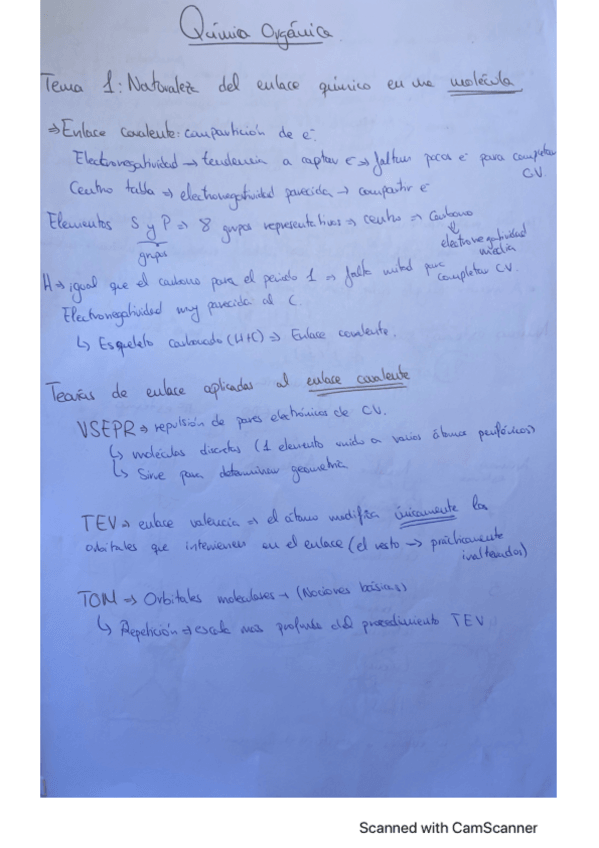 Química Orgánica
Tema 1: Naturaleza del enlace químico en una molécula
⇒ Enlace covalente: compartición de e⁻
Electronegatividad → tendencia a captar e⁻ ⇒ faltan pocos e⁻ para completar
CV.
Centro tabla ⇒ electronegatividad parecida → compartir e⁻
Elementos S y P ⇒ 8 grupos representativos ⇒ centro ⇒ Carbono
grupos
⇓
electronegatividad
media
H ⇒ igual que el carbono para el periodo 1 ⇒ falta mitad para
completar CV.
Electronegatividad muy parecida al C.
↳ Esqueleto carbonado (H+C) ⇒ Enlace covalente.
Teorías de enlace aplicadas al enlace covalente
VSEPR ⇒ repulsión de pares electrónicos de CV.
↳ moléculas discretas (1 elemento unido a varios átomos periféricos)
↳ Sirve para determinar geometría
TEV ⇒ enlace valencia ⇒ el átomo modifica únicamente los
orbitales que intervienen en el enlace (el resto → prácticamente
inalterados)
TOM ⇒ Orbitales moleculares → (Nociones básicas)
↳ Repetición ⇒ escala más profunda del procedimiento TEV.
Scanned with CamScanner